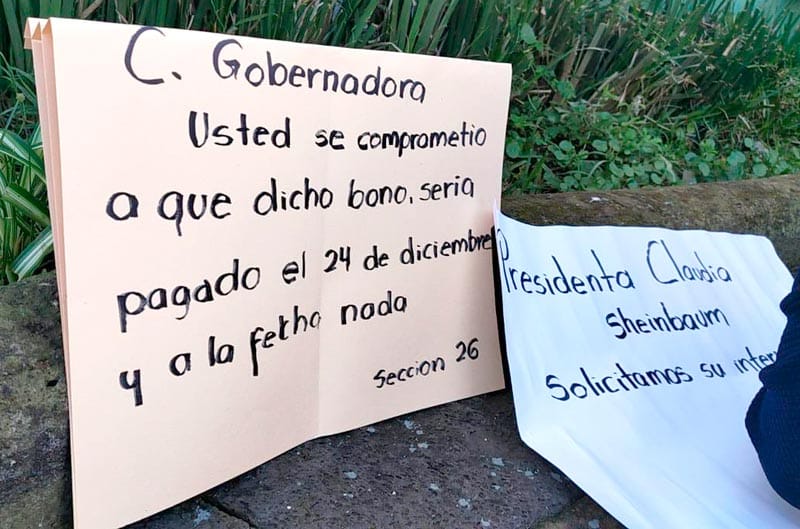 C. Gobernadora
Usted se comprometio
a que dicho bono, seria
pagado el 24 de diciembre
y a la fecha nada
Seccion 26
Presidenta Claudia
Sheinbaum
Solicitamos su